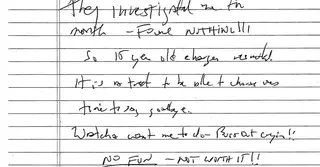 They investigated me for
month — Found NOTHING!!!
So 15 year old charges resulted.
It is a treat to be able to choose one's
time to say goodbye.
Watcha want me to do — Burst out cryin!!
NO FUN — NOT WORTH IT!!